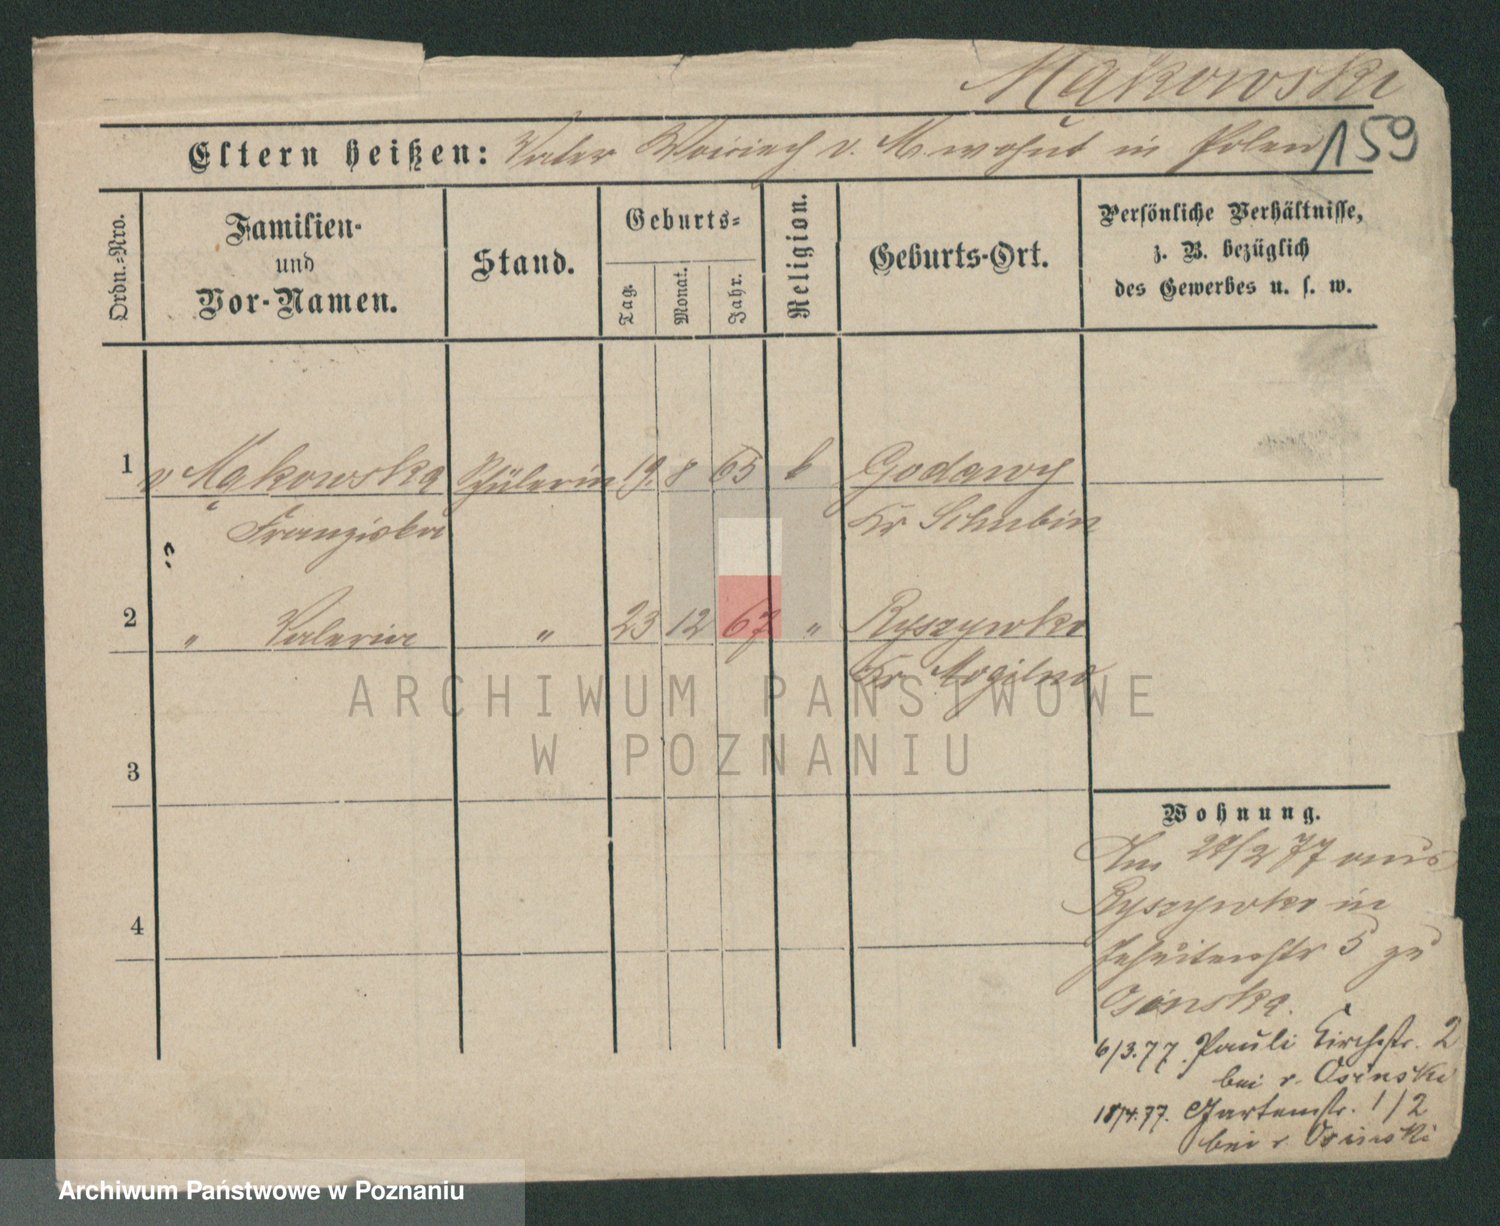 Mąkowski
159
Eltern heißen: Vater Woiciech v. M. wohnt in Polen
Ordn.-Nro.
Familien-
und
Vor-Namen.
Stand.
Geburts-
Tag.
Monat.
Jahr.
Religion.
Geburts-Ort.
Persönliche Verhältnisse,
z. B. bezüglich
des Gewerbes u. s. w.
1 v. Mąkowska Schülerin 19. 8 65 k Godawy
Franziska Kr Schubin
2 " Valeria " 23 12 67 " Ryszywko
Kr Mogilno
3
4
Wohnung.
Am 22/2 77 aus
Ryszywko in
Jesuitenstr 5 zu
Osinska.
6/3.77. Pauli Kirchstr. 2
bei v. Osinski
18/4.77. Gartenstr. 1/2
bei v Osinski
ARCHIWUM PAŃSTWOWE
W POZNANIU
Archiwum Państwowe w Poznaniu